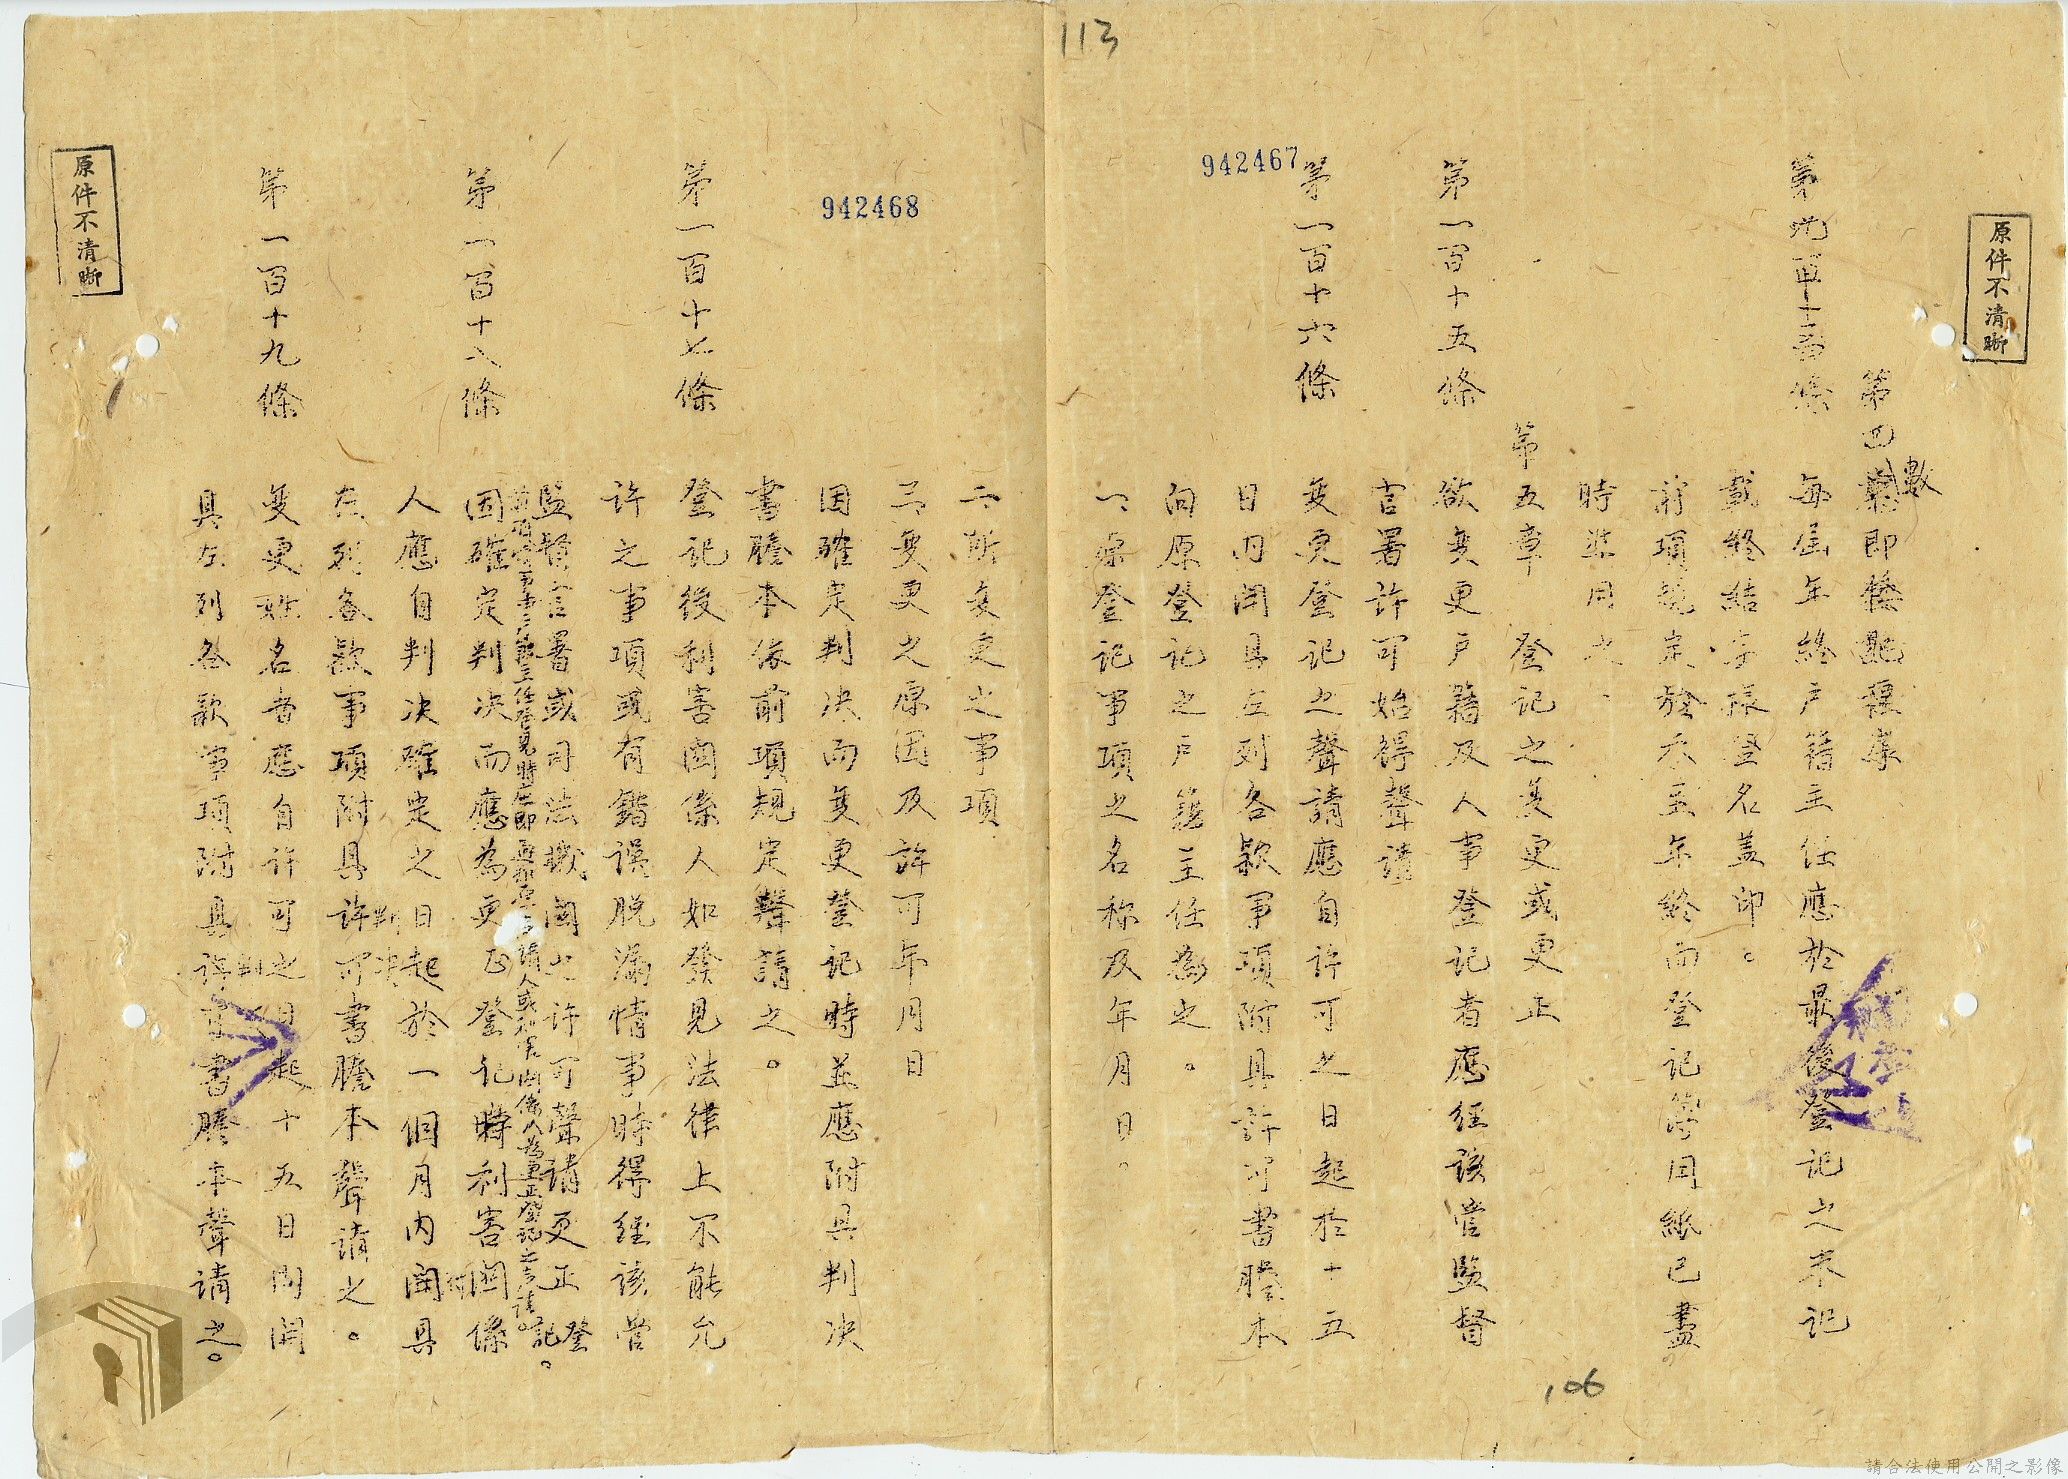 113
942467
942468
原件不清晰
原件不清晰
數
第四
每屆年終戶籍主任應於最後登記之末記
載終結字樣登名蓋印。
前項規定於不至年終而登記簿用紙已盡
時準用之、
第五章 登記之變更或更正
第一百十五條 欲變更戶籍及人事登記者應經該管監督
官署許可始得聲請
第一百十六條 變更登記之聲請應自許可之日起於十五
日內開具左列各款事項附具許可書謄本
向原登記之戶籍主任為之。
一、原登記事項之名称及年月日。
二、所变更之事項
三、变更之原因及許可年月日
因確定判決而变更登記時並應附具判決
書謄本依前項規定聲請之。
第一百十七條 登記後利害関係人如發見法律上不能允
許之事項或有錯誤脫漏情事時得經該管
監督官署或司法機関之許可聲請更正登記。
人或利害関係人為更正登記之声請。
第一百十八條 因確定判決而應為更正登記時利害関係
人應自判決確定之日起於一個月內開具
左列各款事項附具許可書謄本聲請之。
判決
第一百十九條 变更姓名者應自許可之日起十五日內開
具左列各款事項附具許可書謄本聲請之。
106
請合法使用公開之影像